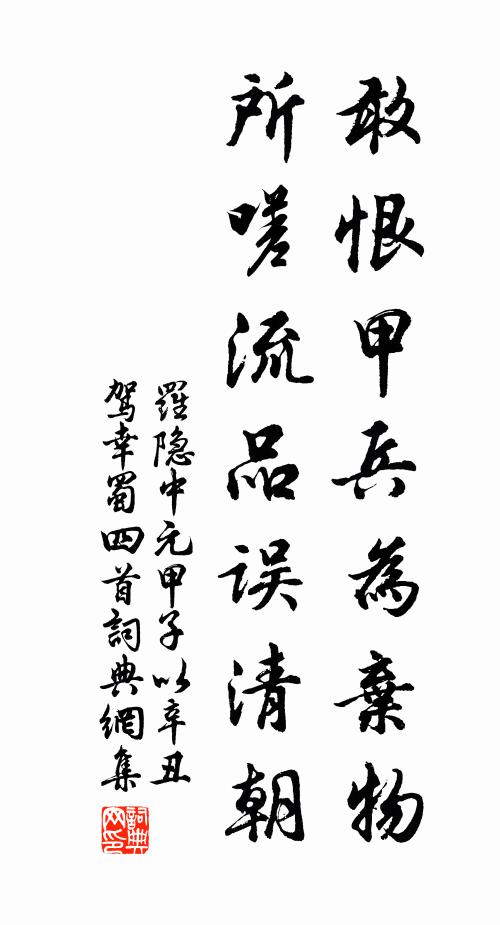 敢恨甲兵為棄物
所嗟流品误清朝
羅隐中元甲子以辛丑
駕幸蜀四首詞典網集
詞典
网印